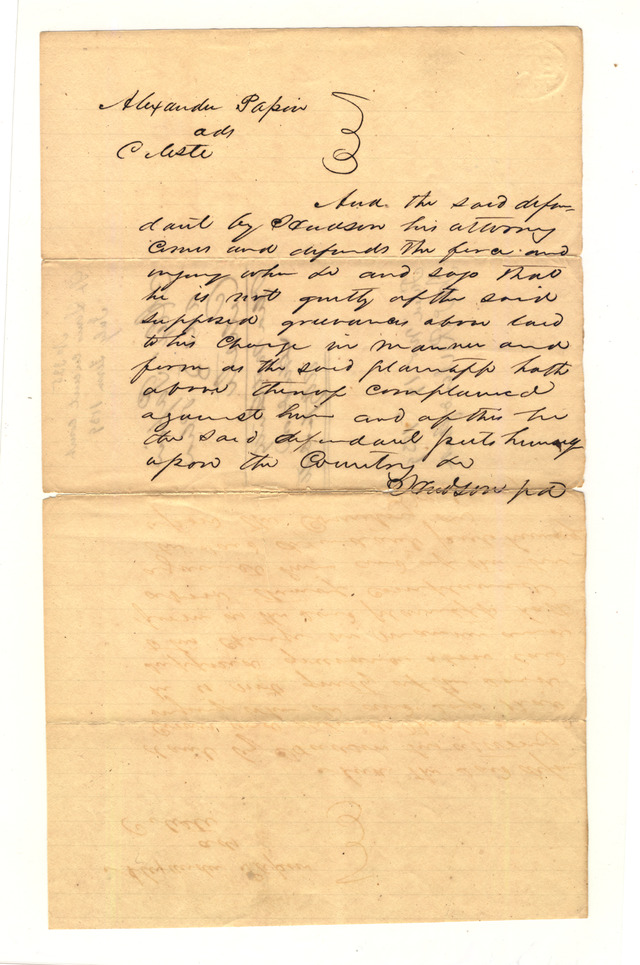 Alexander Papin
ads
Celeste
And the said defen-
dant by Hudson his attorney
comes and defends the force and
injury when &c and says that
he is not guilty of the said
supposed grievances above laid
to his charge in manner and
form as the said plaintiff hath
above thereof complained
against him and of this he
the said defendant puts himself
upon the Country &c
Hudson pd